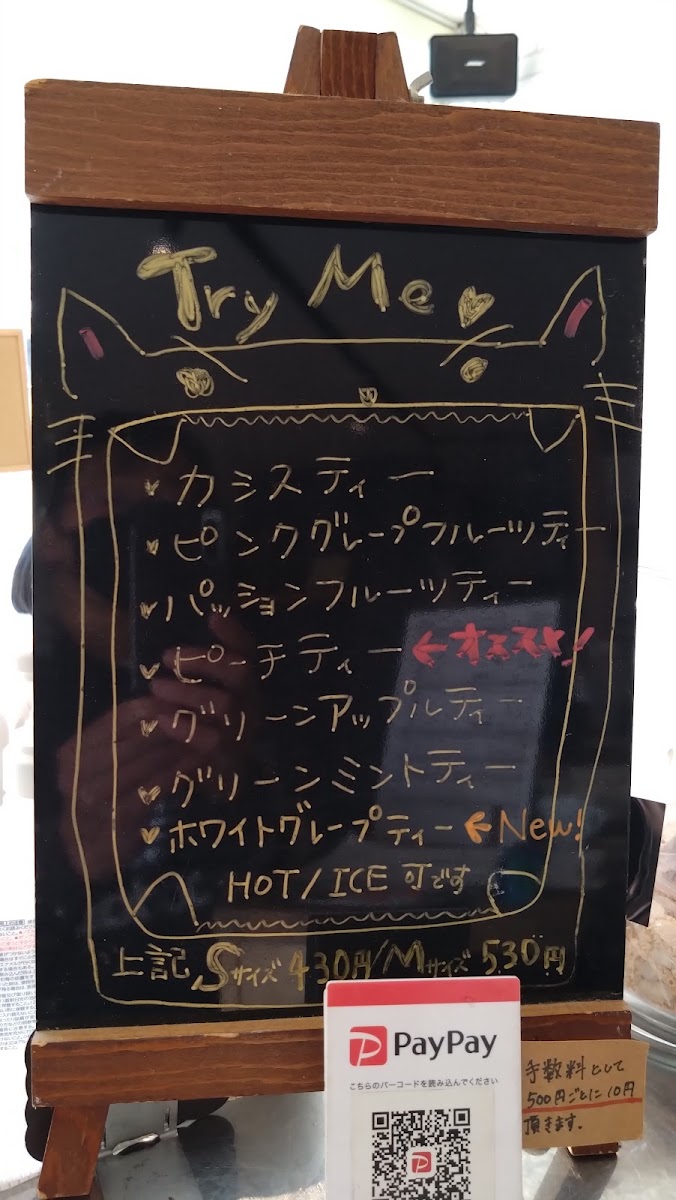 BOSE
Try Me
カシスティー
ピンクグレープフルーツティー
パッションフルーツティー
ピーチティー ←オススメ!
グリーンアップルティー
グリーンミントティー
ホワイトグレープティー ←New!
HOT/ICE 可です
上記 Sサイズ 430円/Mサイズ 530円
PayPay
こちらのバーコードを読み込んでください
手数料として
500円ごとに10円
頂きます.